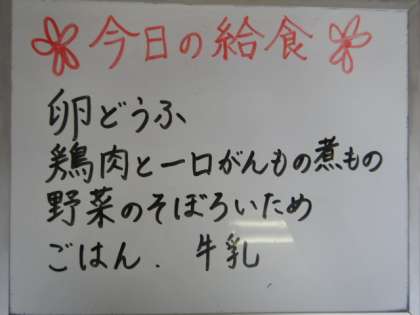 今日の給食
卵どうふ
鶏肉と一口がんもの煮もの
野菜のそぼろいため
ごはん. 牛乳